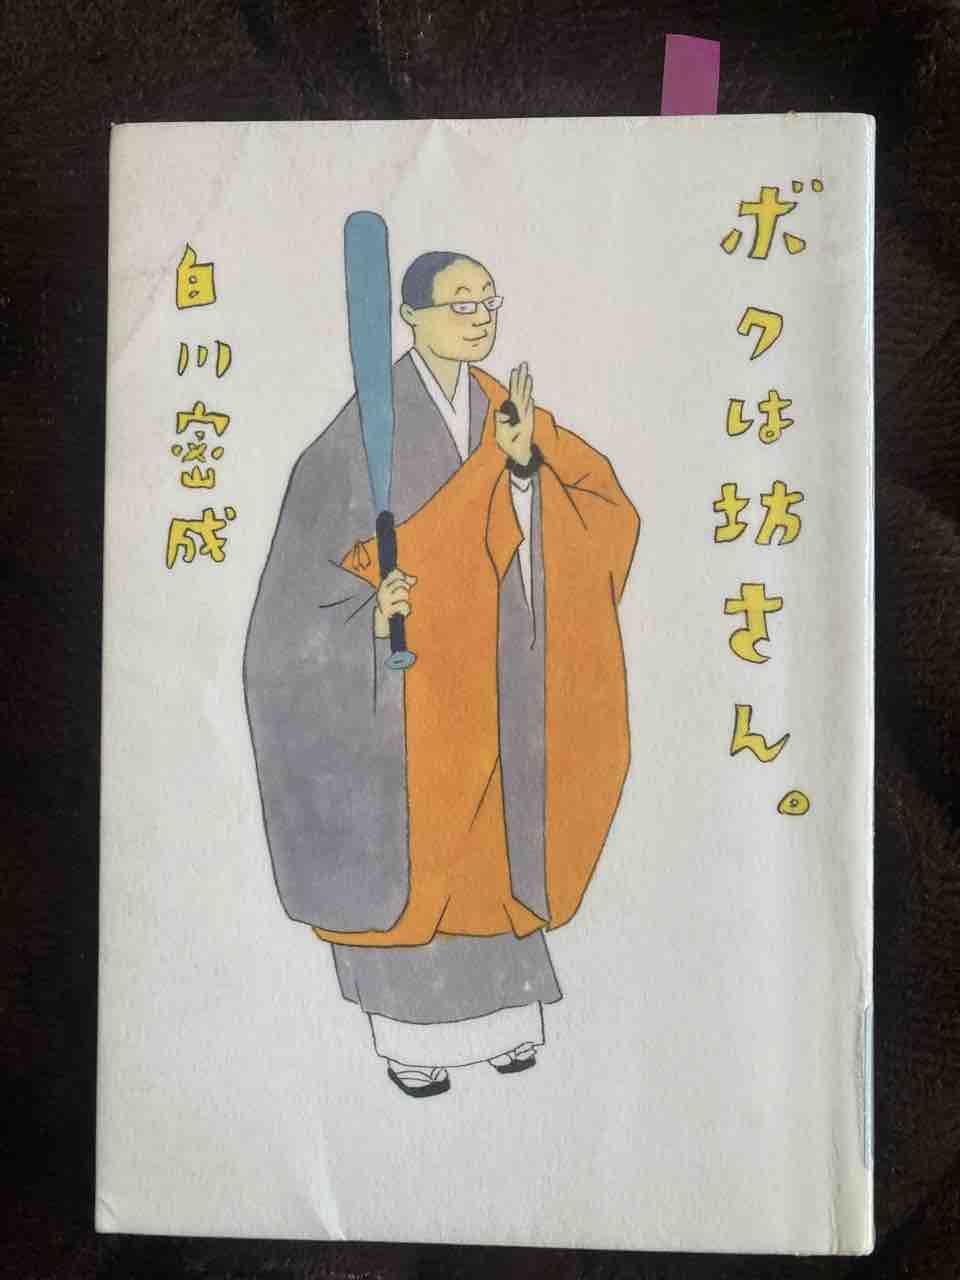 ボクは坊さん。
白川密成